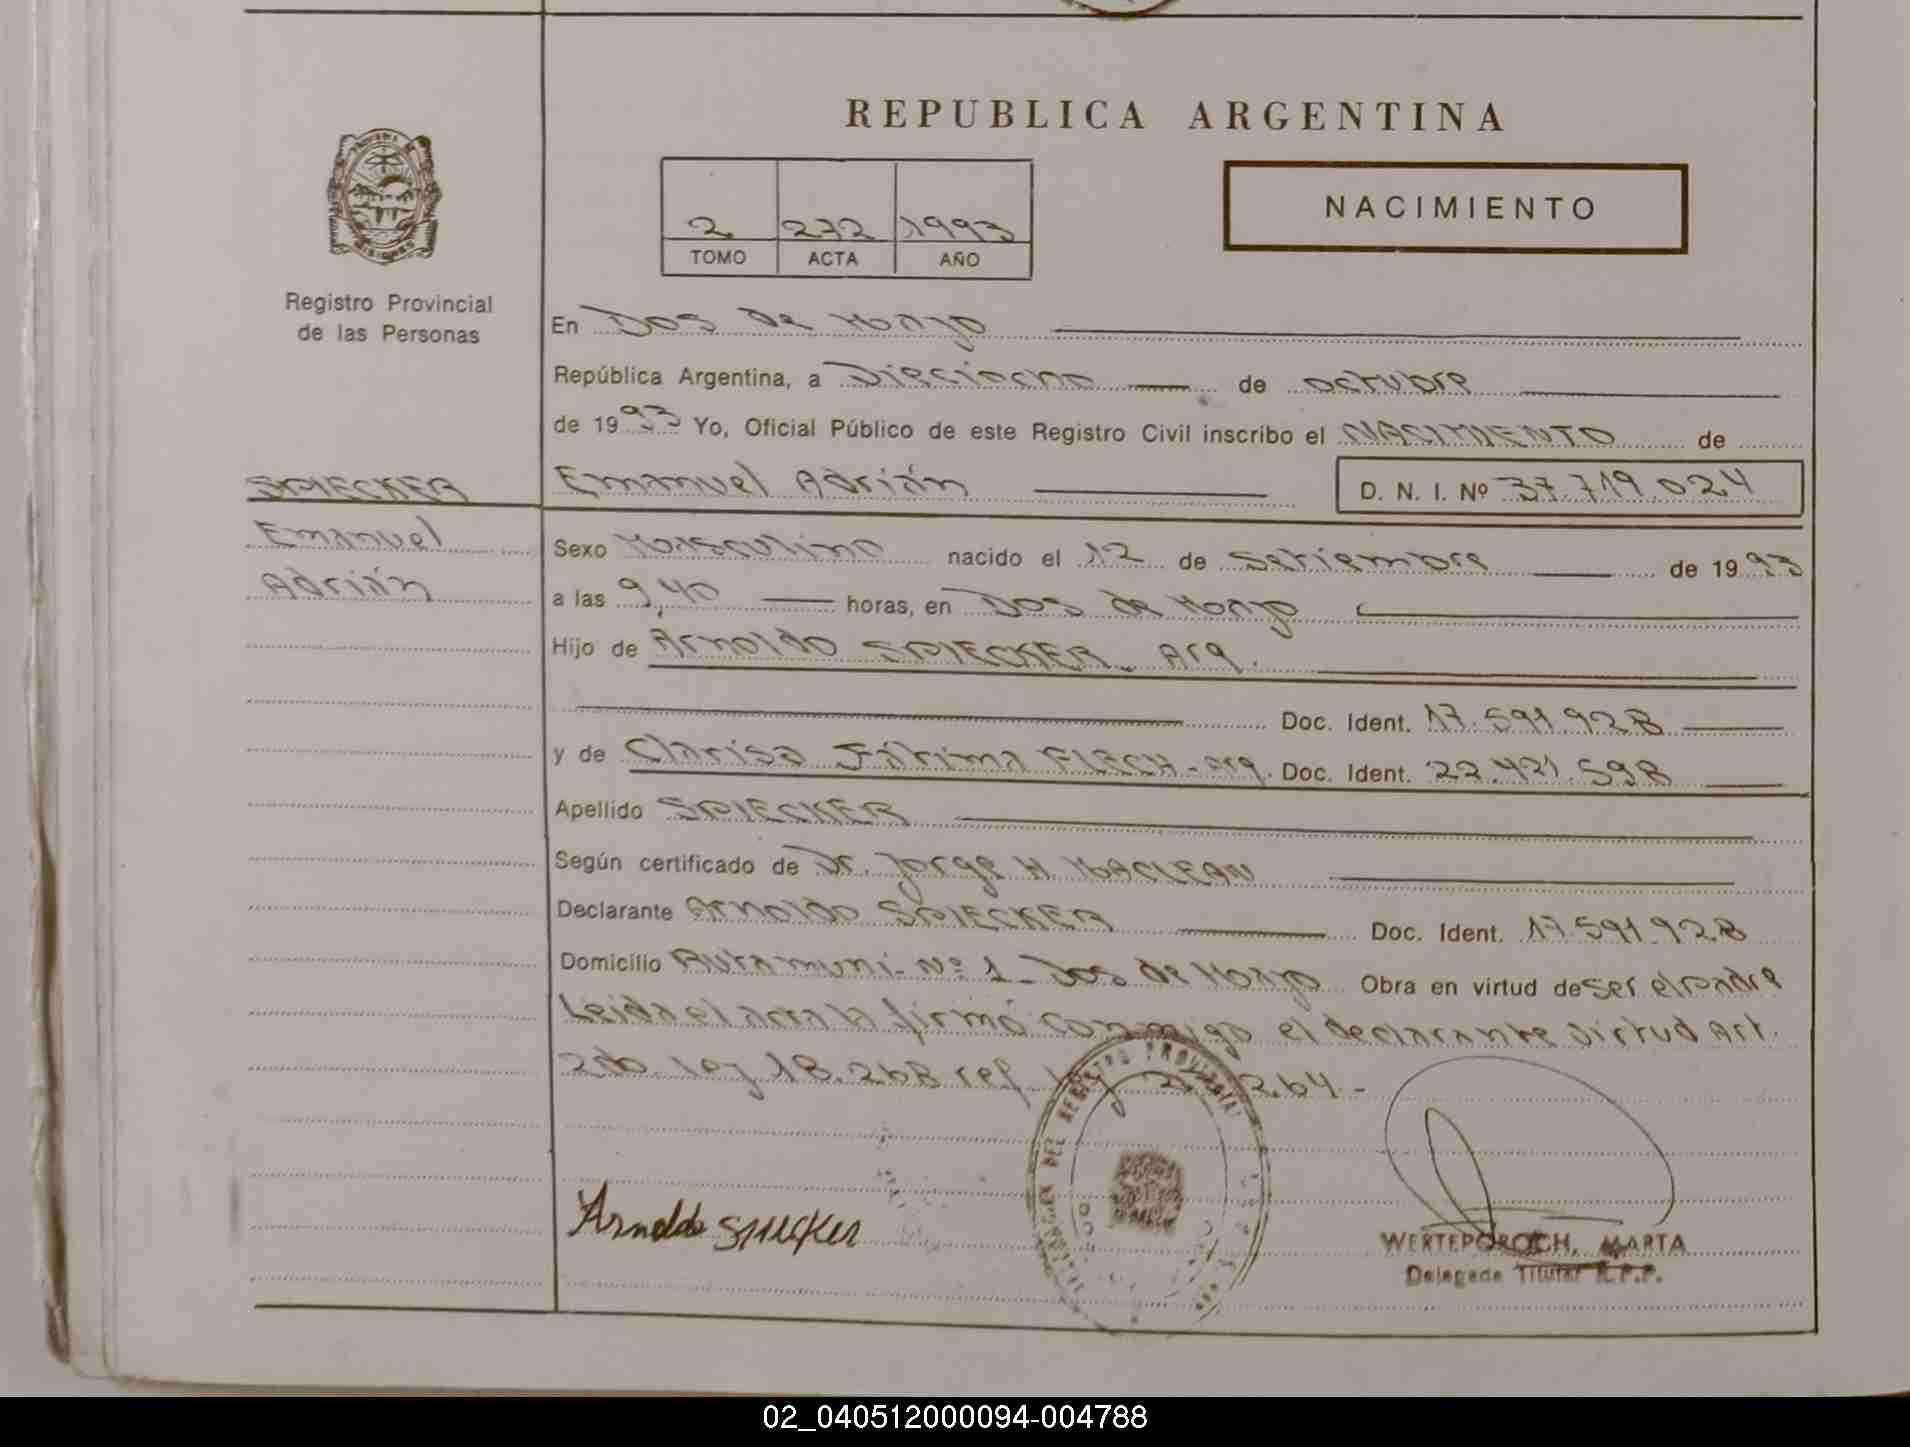 REPUBLICA ARGENTINA
NACIMIENTO
2 272 1993
TOMO ACTA AÑO
Registro Provincial
de las Personas
En Dos de Mayo
República Argentina, a Dieciocho de octubre
de 1993 Yo, Oficial Público de este Registro Civil inscribo el NACIMIENTO de
SPIECKER
Emanuel Adrián D. N. I. Nº 37.719.024
Emanuel
Adrián
Sexo Masculino nacido el 12 de Setiembre de 1993
a las 9,40 horas, en Dos de Mayo
Hijo de Arnoldo SPIECKER - Arg.
Doc. Ident. 17.591.928
y de Clarisa Fátima FLECH - Arg. Doc. Ident. 22.421.598
Apellido SPIECKER
Según certificado de Dr. Jorge H. MACLEAN
Declarante Arnoldo SPIECKER Doc. Ident. 17.591.928
Domicilio Nº 1 - Dos de Mayo Obra en virtud de ser el padre
Leída el acta la firmó conmigo el declarante virtud Art.
2do. ley 18.268 ref. 264.-
DEL REGISTRO PROVINCIAL
Arnoldo Spiecker
WERTEPOROCH, MARTA
Delegada Titular R.P.P.
02_040512000094-004788